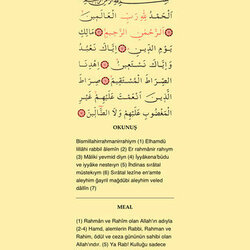 اَلْحَمْدُ لِلّٰهِ رَبِّ الْعَالَمِينَ
اَلرَّحْمٰنِ الرَّحِيمِ مَالِكِ
يَوْمِ الدِّينِ اِيَّاكَ نَعْبُدُ
وَاِيَّاكَ نَسْتَعِينُ اِهْدِنَا
الصِّرَاطَ الْمُسْتَقِيمَ صِرَاطَ
الَّذِينَ اَنْعَمْتَ عَلَيْهِمْ غَيْرِ
الْمَغْضُوبِ عَلَيْهِمْ وَلَا الضَّالِّينَ
OKUNUŞ
Bismillahirrahmanirrahiym (1) Elhamdü
lillâhi rabbil âlemîn (2) Er rahmânir rahıym
(3) Mâliki yevmid diyn (4) İyyâkena'büdu
ve iyyâke nesteıyn (5) İhdinas sırâtal
müstekıym (6) Sırâtal lezîne en'amte
aleyhim ğayril mağdûbi aleyhim veled
dâllîn (7)
MEAL
(1) Rahmân ve Rahîm olan Allah'ın adıyla
(2-4) Hamd, alemlerin Rabbi, Rahman ve
Rahim, ödül ve ceza gününün sahibi olan
Allah'ındır. (5) Ya Rab! Kulluğu sadece